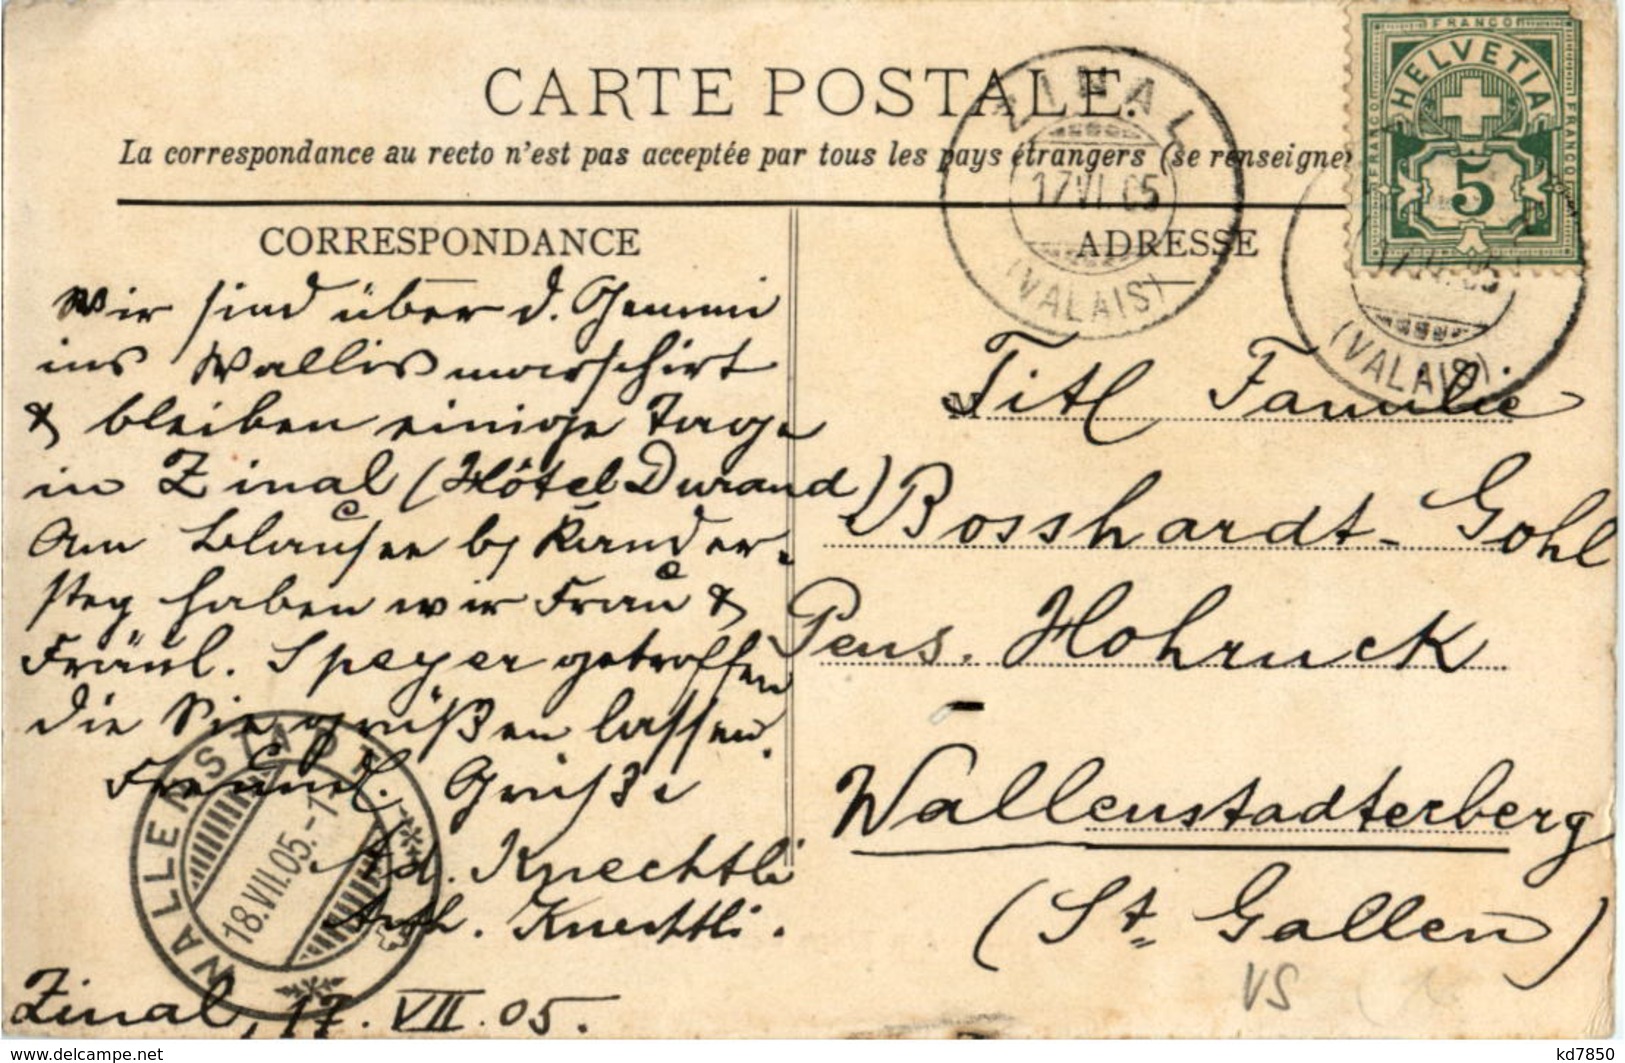 CARTE POSTALE.
La correspondance au recto n'est pas acceptée par tous les pays étrangers (se renseigner
CORRESPONDANCE
Wir sind über d. Gemmi
ins Wallis marschirt
& bleiben einige Tage
in Zinal (Hôtel Durand)
Am Blausee b/ Kander-
steg haben wir Frau &
Fräul. Speyer getroffen
die Sie grüßen lassen.
Freundl. Grüße
Ad. Knechtli
Knechtli.
Zinal, 17. VII. 05.
ADRESSE
Titl Familie
Bosshardt-Gohl
Pens. Hohruck
Wallenstadterberg
(St. Gallen)
VS
FRANCO
HELVETIA
FRANCO
FRANCO
5
ZINAL
17 VI. 05
(VALAIS)
(VALAIS)
WALLENSTADT
18.VII.05.-1
www.delcampe.net
kd7850